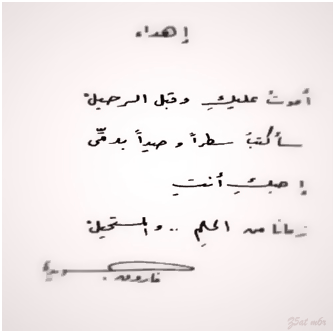 إهداء
أموتُ عليكِ وقبل الرحيل
سأكتبُ سطراً وحيداً بدمّى
احبكِ أنتِ
زمانا من الحلمِ .. والمستحيل
فاروق جويدة